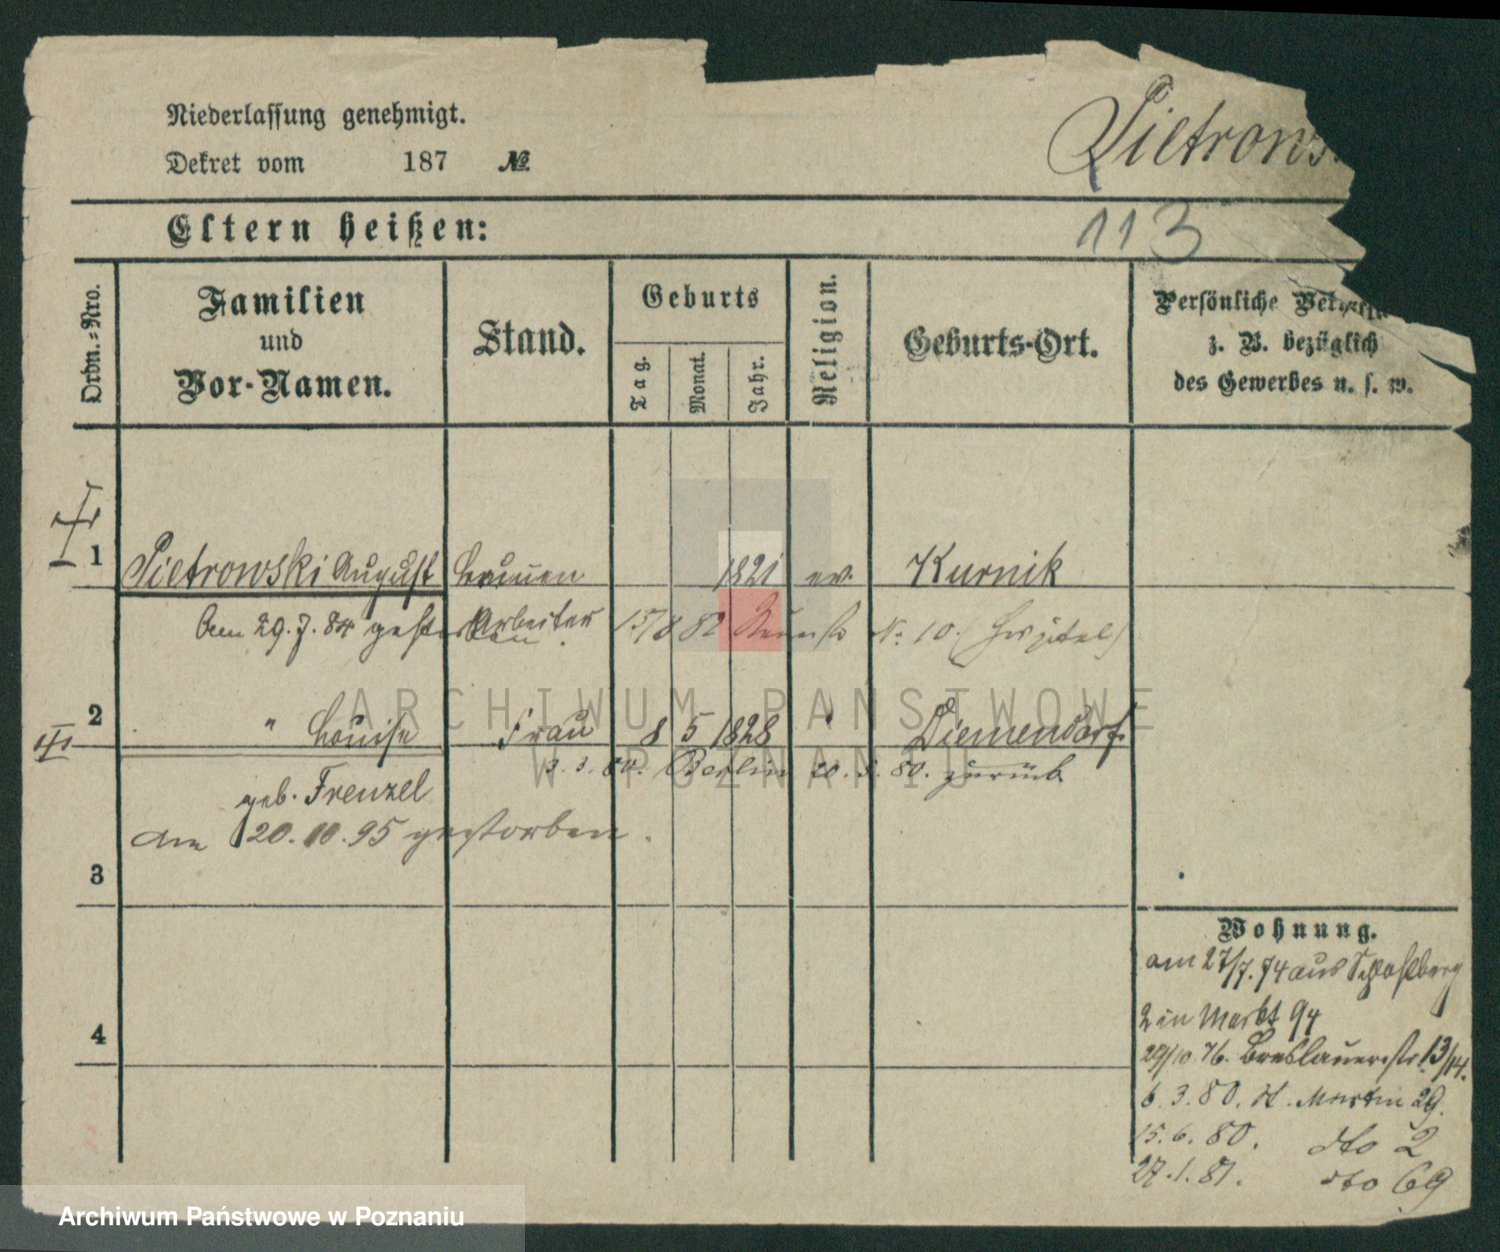 Niederlassung genehmigt.
Dekret vom 187 №
Pietrows
Eltern heißen:
113
Ordn.-Nro.
Familien
und
Vor-Namen.
Stand.
Geburts
Tag.
Monat.
Jahr.
Religion.
Geburts-Ort.
Persönliche
z. B. bezüglich
des Gewerbes u. s. w.
1 Pietrowski August 1821 ev. Kurnik
Am 29.7.84 gestorben Arbeiter 15/8 82 No 10. (Hospital)
2 " Louise Frau 8 5 1828 " Diemendorf
3.3.80. Berlin 20.5.80. zurück
geb. Frenzel
am 20.10.95 gestorben.
3
4
Wohnung.
am 27/7.74 aus
in Markt 94
29/10.76. Breslauerstr. 13/14.
6.3.80. St. Martin 29.
15.6.80. dto 2
27.1.81. dto 69
ARCHIWUM PAŃSTWOWE
W POZNANIU
Archiwum Państwowe w Poznaniu